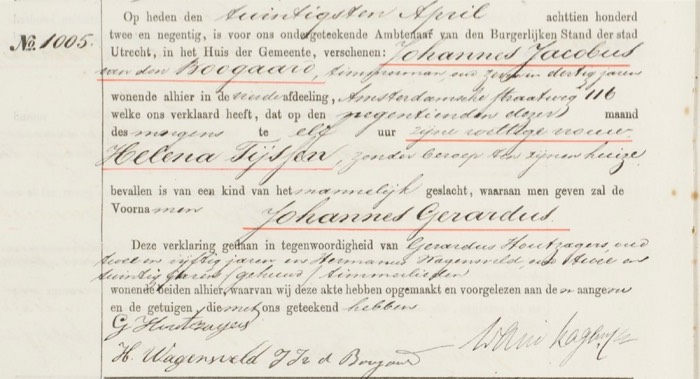 Op heden den twintigsten April achttien honderd
No. 1005.
twee en negentig, is voor ons ondergeteekende Ambtenaar van den Burgerlijken Stand der stad
Utrecht, in het Huis der Gemeente, verschenen: Johannes Jacobus
van den Boogaard, timmerman, oud zeven en dertig jaren
wonende alhier in de vierde afdeeling, Amsterdamsche straatweg 116
welke ons verklaard heeft, dat op den negentienden dezer maand
des morgens te elf uur zijne wettige vrouw
Helena Tijssen, zonder beroep ten zijnen huize
bevallen is van een kind van het mannelijk geslacht, waaraan men geven zal de
Voornamen Johannes Gerardus
Deze verklaring gedaan in tegenwoordigheid van Gerardus Houtzagers, oud
twee en vijftig jaren en Hermanus Wagensveld, oud twee en
twintig jaren /gehuwd/ timmerlieden
wonende beiden alhier, waarvan wij deze akte hebben opgemaakt en voorgelezen aan de n aangever
en de getuigen, die met ons geteekend hebben
G Houtzagers
H. Wagensveld J J v d Boogaard